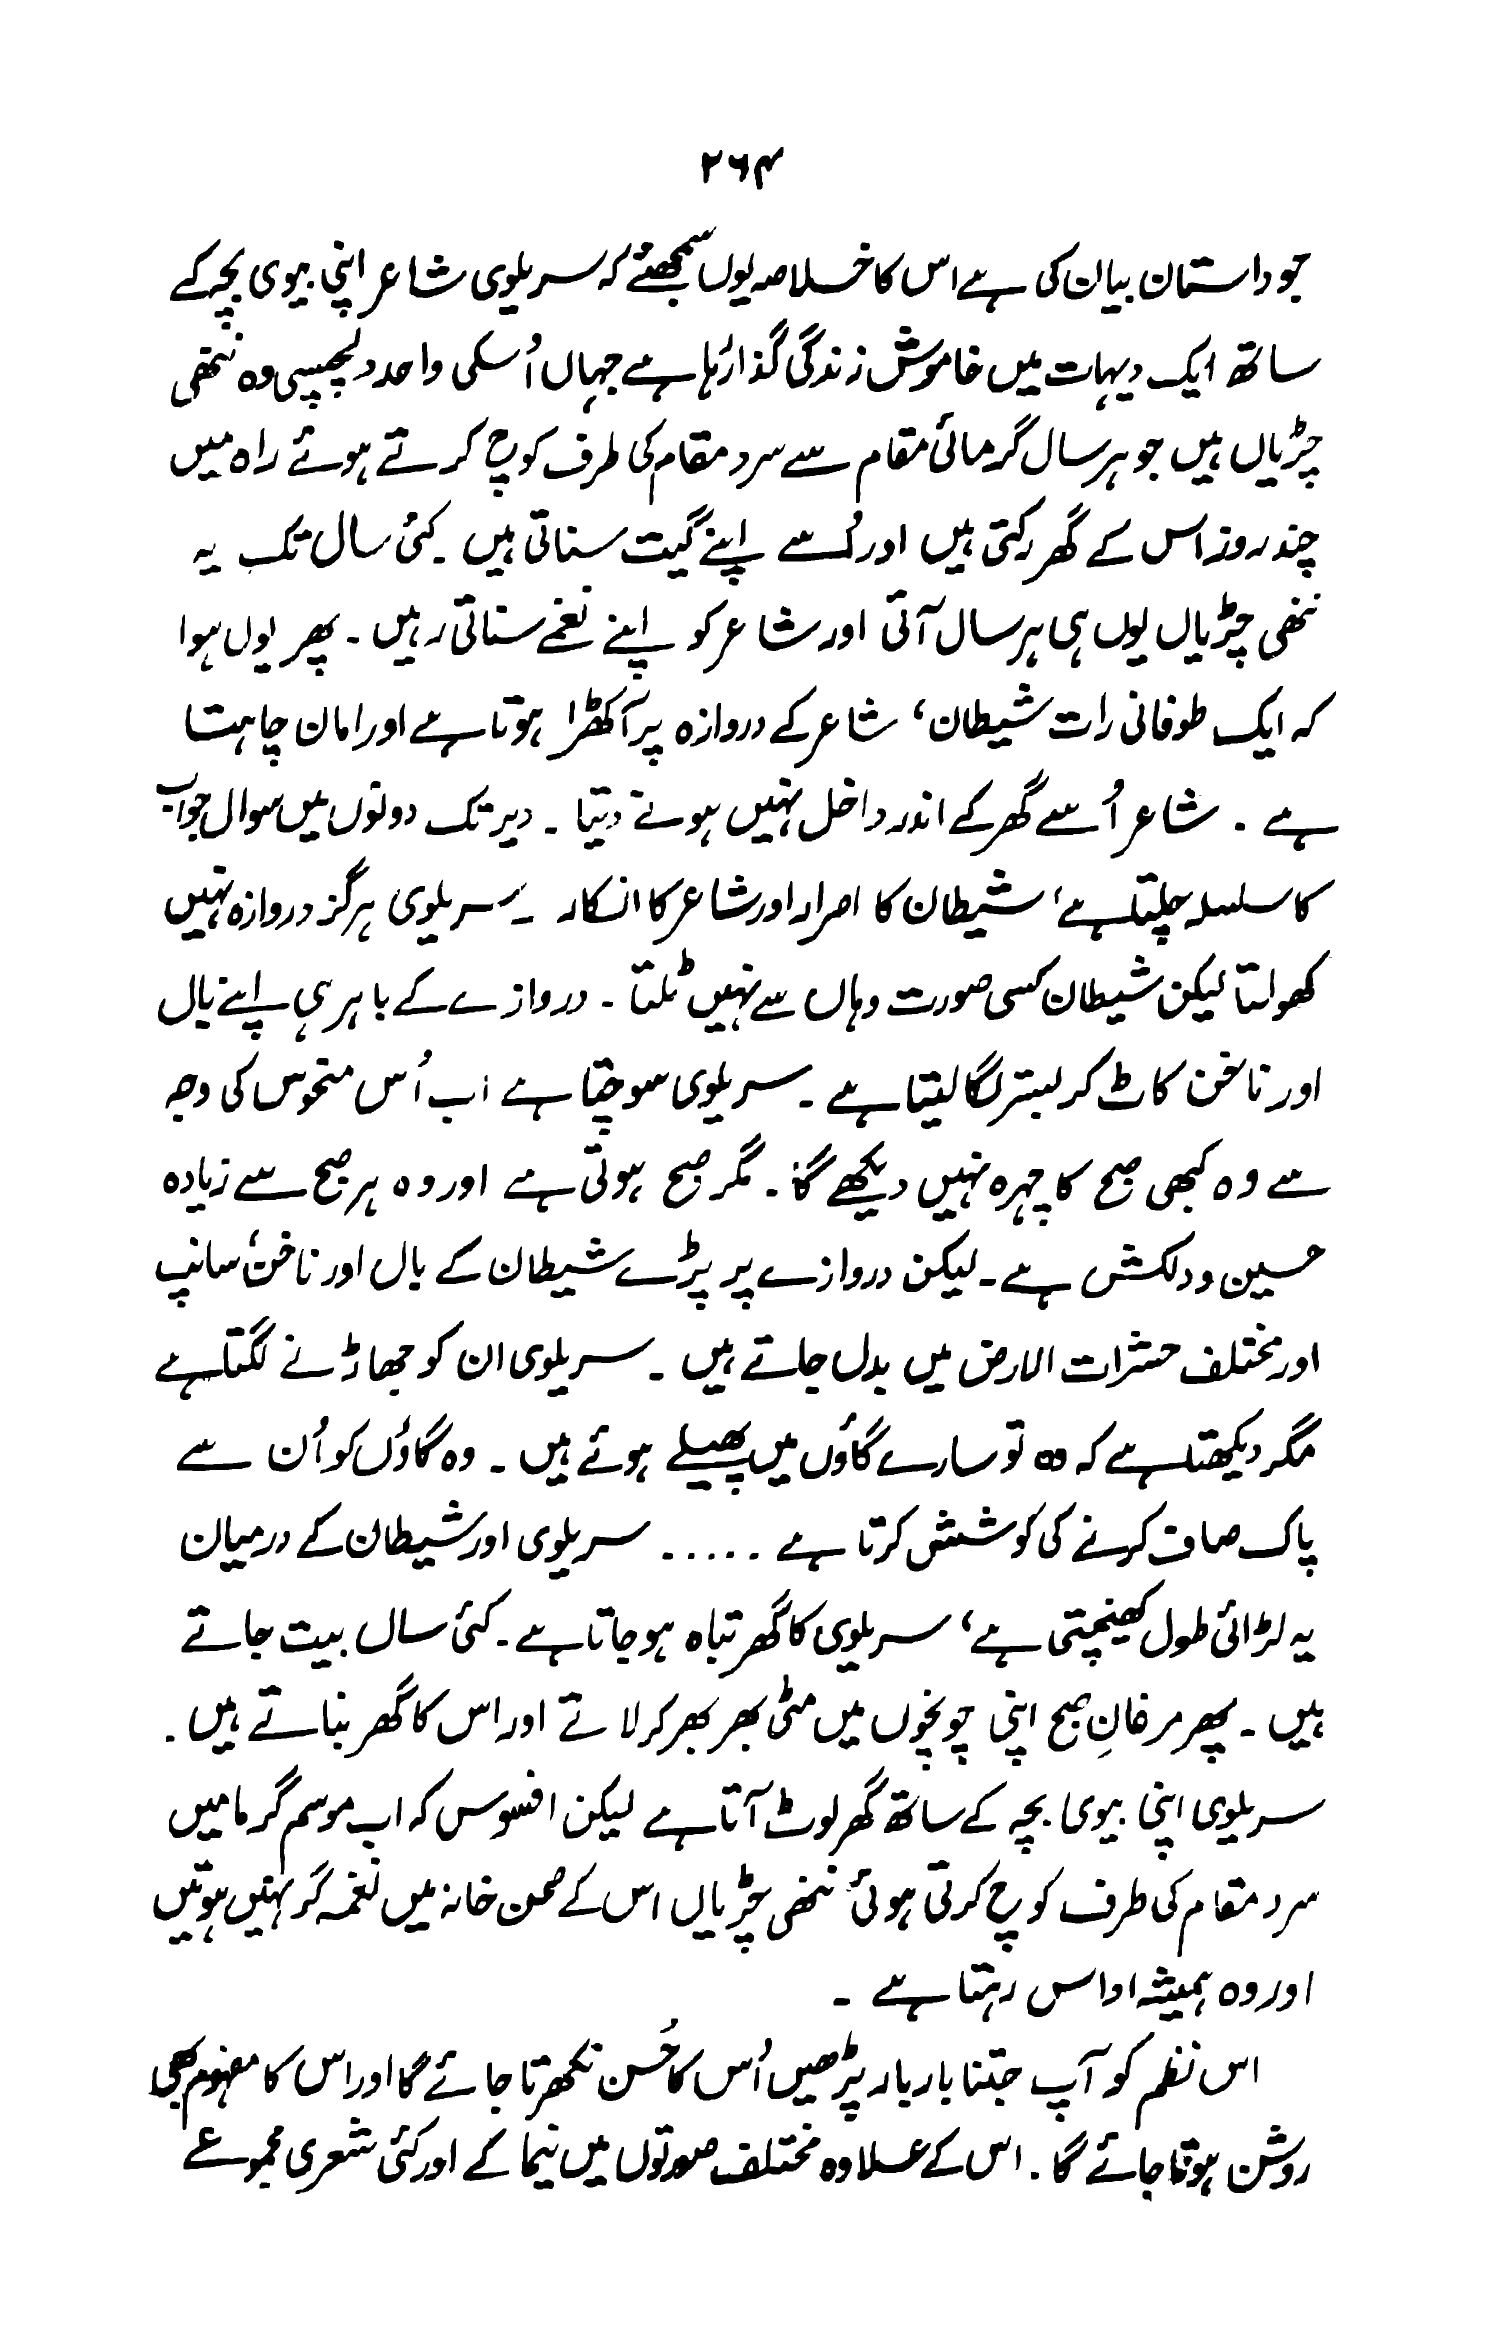 ۲۶۴
جو داستان بیان کی ہے اس کا خلاصہ یوں سمجھئے کہ سریلوی شاعر اپنی بیوی بچہ کے
ساتھ ایک دیہات میں خاموش زندگی گذار رہا ہے جہاں اُسکی واحد دلچسپی وہ ننھی
چڑیاں ہیں جو ہر سال گرمائی مقام سے سرد مقام کی طرف کوچ کرتے ہوئے راہ میں
چند روز اس کے گھر رکتی ہیں اور اُسے اپنے گیت سناتی ہیں ۔ کئی سال تک یہ
ننھی چڑیاں یوں ہی ہر سال آتی اور شاعر کو اپنے نغمے سناتی رہیں ۔ پھر یوں ہوا
کہ ایک طوفانی رات شیطان، شاعر کے دروازہ پر آکھڑا ہوتا ہے اور امان چاہتا
ہے ۔ شاعر اُسے گھر کے اندر داخل نہیں ہونے دیتا ۔ دیر تک دونوں میں سوال جواب
کا سلسلہ چلتا ہے، شیطان کا اصرار اور شاعر کا انکار ۔ سریلوی ہرگز دروازہ نہیں
کھولتا لیکن شیطان کسی صورت وہاں سے نہیں ٹلتا ۔ دروازے کے باہر ہی اپنے بال
اور ناخن کاٹ کر بستر لگا لیتا ہے ۔ سریلوی سوچتا ہے اب اُس منحوس کی وجہ
سے وہ کبھی صبح کا چہرہ نہیں دیکھے گا ۔ مگر صبح ہوتی ہے اور وہ ہر صبح سے زیادہ
حسین و دلکش ہے ۔ لیکن دروازے پر پڑے شیطان کے بال اور ناخن، سانپ
اور مختلف حشرات الارض میں بدل جاتے ہیں ۔ سریلوی ان کو جھاڑنے لگتا ہے
مگر دیکھتا ہے کہ وہ تو سارے گاؤں میں پھیلے ہوئے ہیں ۔ وہ گاؤں کو اُن سے
پاک صاف کرنے کی کوشش کرتا ہے ..... سریلوی اور شیطان کے درمیان
یہ لڑائی طول کھینچتی ہے، سریلوی کا گھر تباہ ہو جاتا ہے ۔ کئی سال بیت جاتے
ہیں ۔ پھر مرغانِ صبح اپنی چونچوں میں مٹی بھر بھر کر لاتے اور اس کا گھر بناتے ہیں ۔
سریلوی اپنی بیوی بچہ کے ساتھ گھر لوٹ آتا ہے لیکن افسوس کہ اب موسم گرما میں
سرد مقام کی طرف کوچ کرتی ہوئی ننھی چڑیاں اس کے صحن خانہ میں نغمہ گر نہیں ہوتیں
اور وہ ہمیشہ اداس رہتا ہے ۔
اس نظم کو آپ جتنا بار بار پڑھیں اُس کا حُسن نکھرتا جائے گا اور اس کا مفہوم بھی
روشن ہوتا جائے گا ۔ اس کے علاوہ مختلف صورتوں میں نیما کے اور کئی شعری مجموعے